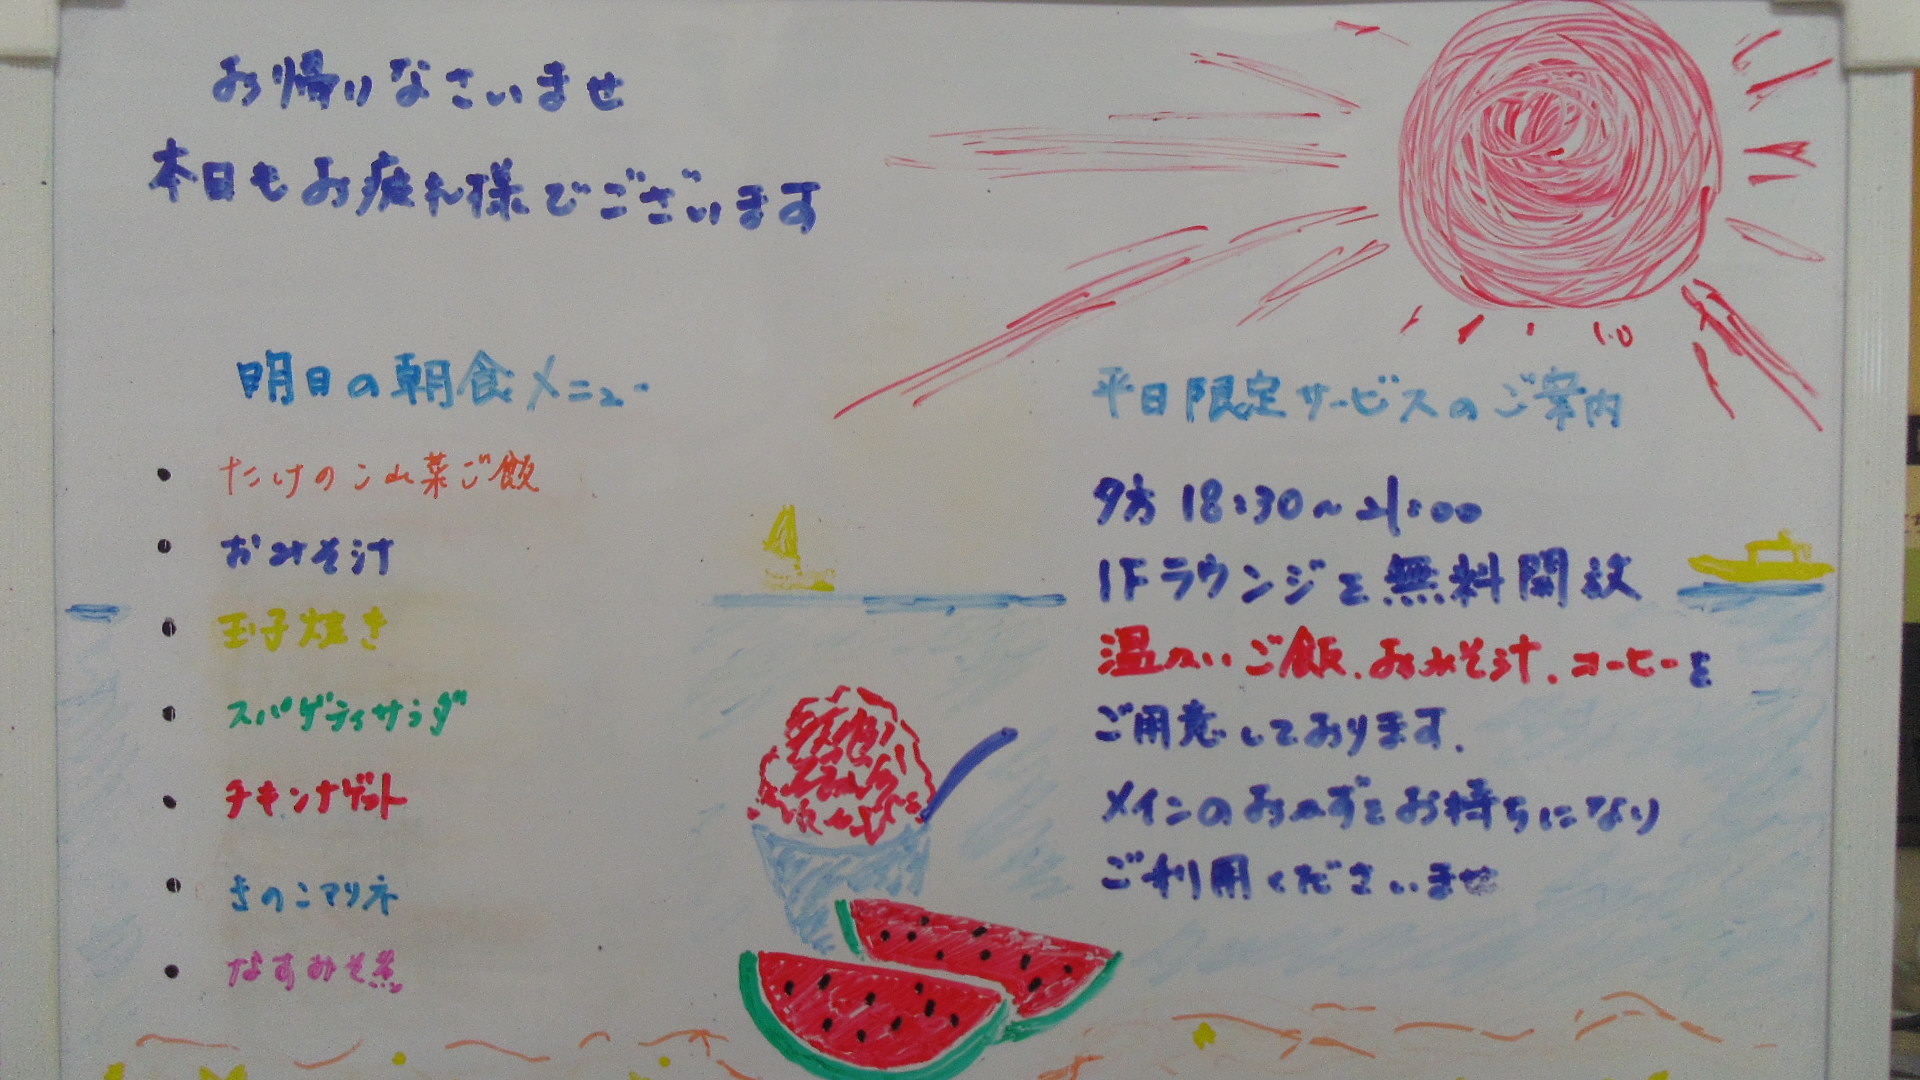 お帰りなさいませ
本日もお疲れ様でございます
明日の朝食メニュー
• たけのこ山菜ご飯
• おみそ汁
• 玉子焼き
• スパゲティサラダ
• チキンナゲット
• きのこマリネ
• なすみそ煮
平日限定サービスのご案内
夕方 18:30~21:00
1Fラウンジを無料開放
温かいご飯、おみそ汁、コーヒーを
ご用意しております。
メインのおかずをお持ちになり
ご利用くださいませ